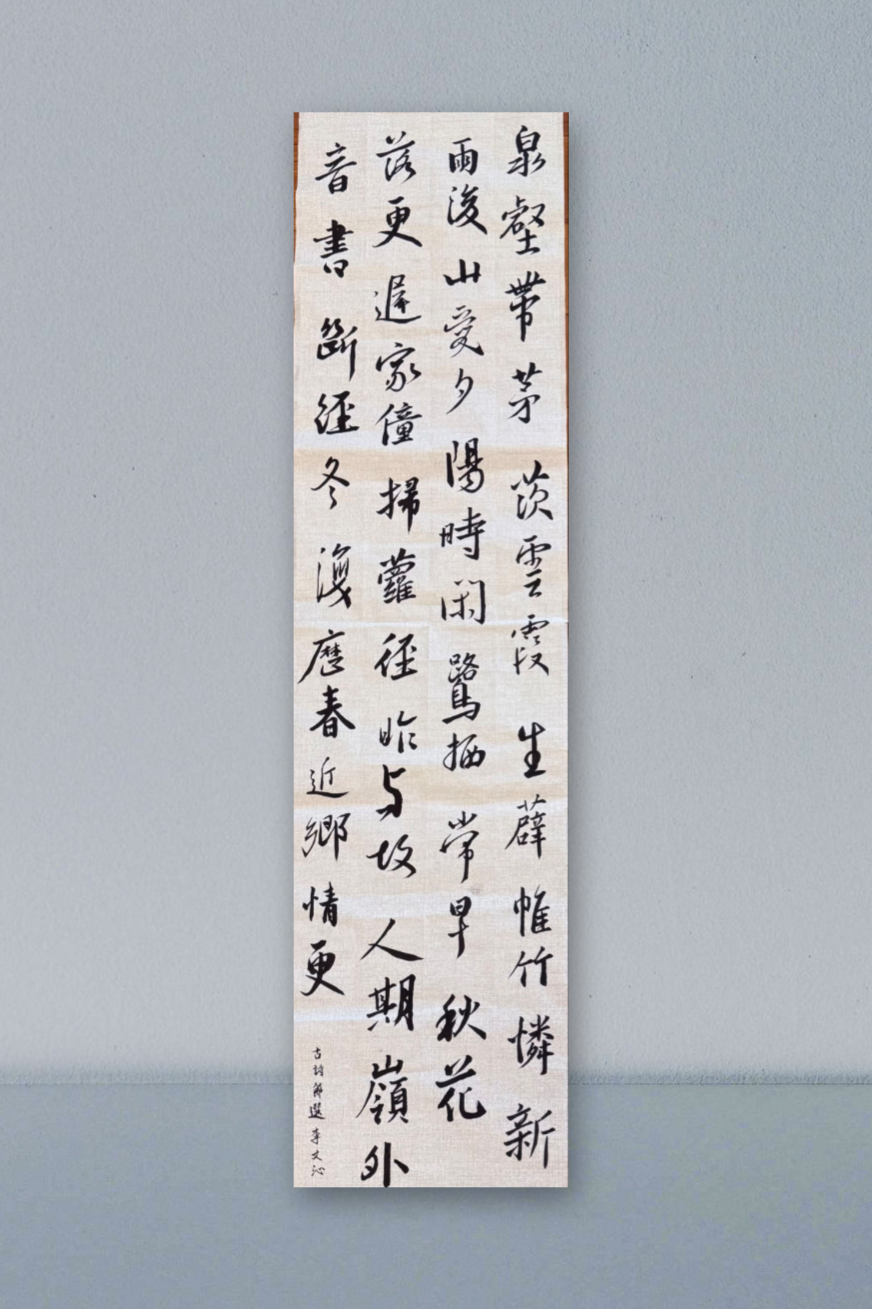 泉壑帶茅茨雲霞生薜帷竹憐新
雨後山愛夕陽時閑鷺栖常早秋花
落更遲家僮掃蘿徑昨与故人期嶺外
音書斷經冬復歷春近鄉情更
古詩節選 李文沁